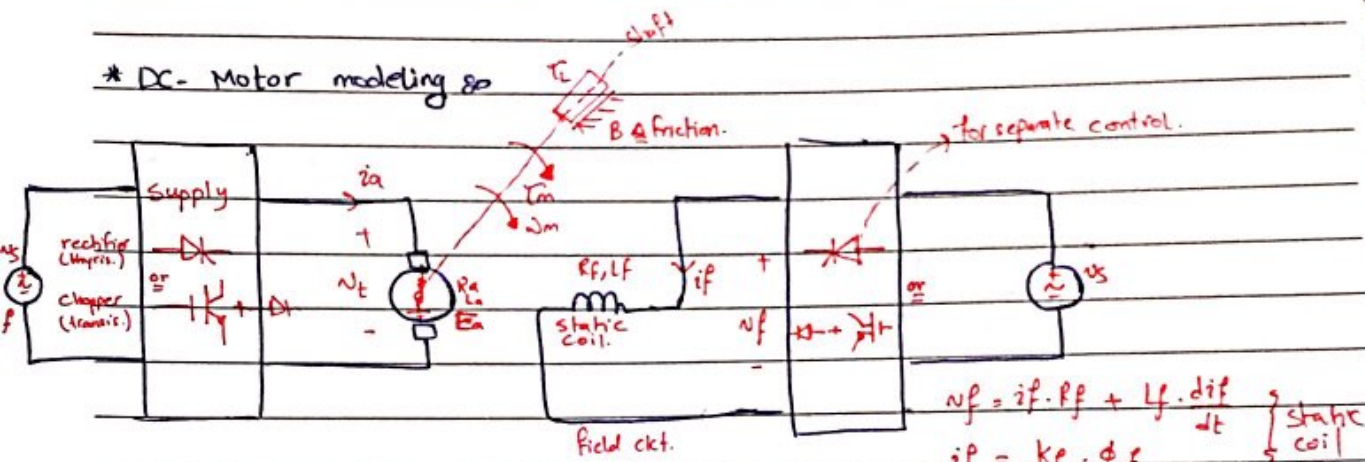 shaft
* DC- Motor modeling
TL
B ≜ friction.
for separate control.
Supply
ia
Tm
ωm
vs
f
rectifier
(thyris.)
or
chopper
(transis.)
+
vt
-
Ra
La
Ea
Rf, Lf
static
coil.
if
+
vf
-
or
vs
field ckt.
vf = if . Rf + Lf . dif/dt } static coil
if = kf . φf